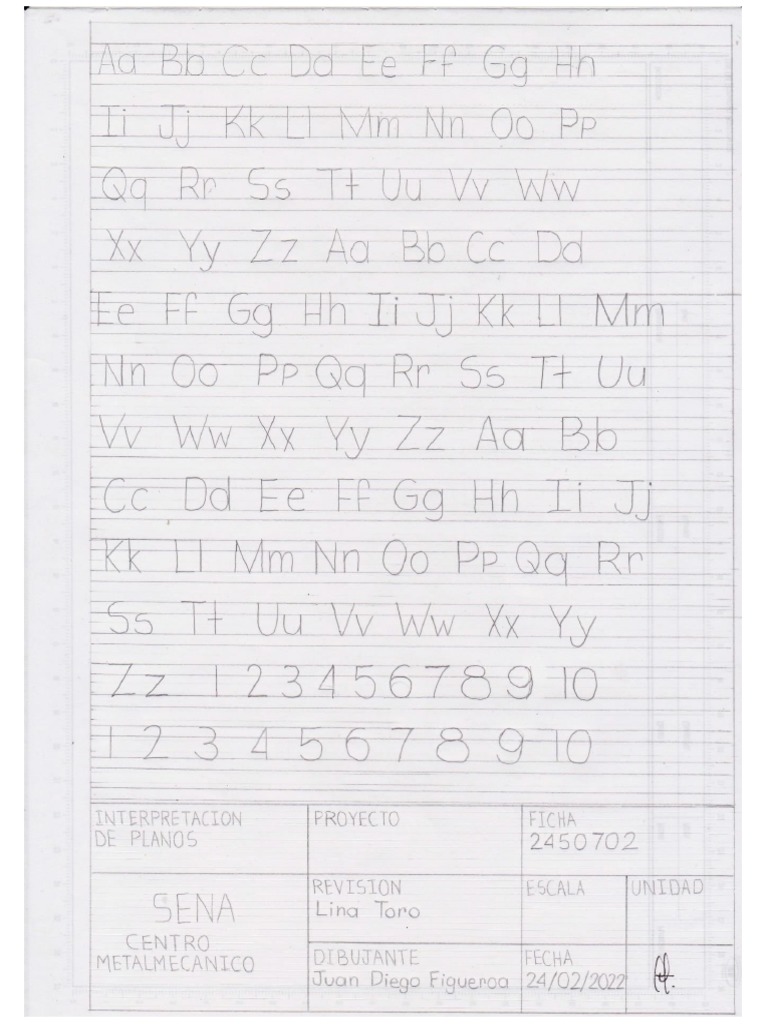 Aa Bb Cc Dd Ee Ff Gg Hh
Ii Jj Kk Ll Mm Nn Oo Pp
Qq Rr Ss Tt Uu Vv Ww
Xx Yy Zz Aa Bb Cc Dd
Ee Ff Gg Hh Ii Jj Kk Ll Mm
Nn Oo Pp Qq Rr Ss Tt Uu
Vv Ww Xx Yy Zz Aa Bb
Cc Dd Ee Ff Gg Hh Ii Jj
Kk Ll Mm Nn Oo Pp Qq Rr
Ss Tt Uu Vv Ww Xx Yy
Zz 1 2 3 4 5 6 7 8 9 10
1 2 3 4 5 6 7 8 9 10
INTERPRETACION
DE PLANOS
PROYECTO
FICHA
2450702
SENA
CENTRO
METALMECANICO
REVISION
Lina Toro
ESCALA
UNIDAD
DIBUJANTE
Juan Diego Figueroa
FECHA
24/02/2022